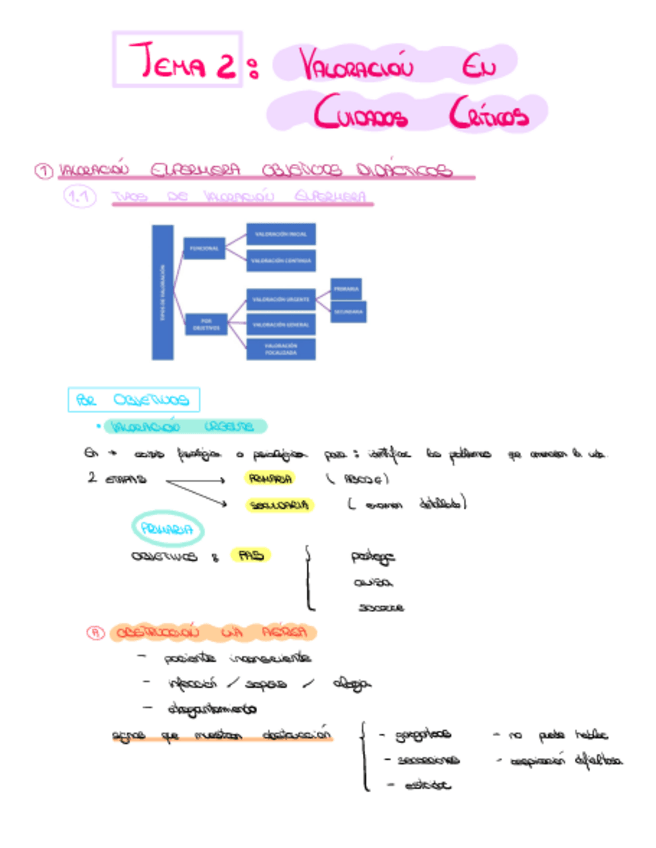 TEMA 2: VALORACIÓN EN
CUIDADOS CRÍTICOS
① VALORACIÓN ENFERMERA OBJETIVOS DIDÁCTICOS
1.1 TIPOS DE VALORACIÓN ENFERMERA
TIPOS DE VALORACIÓN
FUNCIONAL
VALORACIÓN INICIAL
VALORACIÓN CONTINUA
POR OBJETIVOS
VALORACIÓN URGENTE
PRIMARIA
SECUNDARIA
VALORACIÓN GENERAL
VALORACIÓN FOCALIZADA
POR OBJETIVOS
• VALORACIÓN URGENTE
En → crisis fisiológica o psicológica para: identificar los problemas que amenazan la vida
2 ETAPAS → PRIMARIA (ABCDE)
→ SECUNDARIA (examen detallado)
PRIMARIA
OBJETIVOS: PAS { protege
avisa
socorre
Ⓐ OBSTRUCCIÓN VÍA AÉREA
- paciente inconsciente
- infección / sepsis / alergia
- atragantamiento
signos que muestran obstrucción { - gorgoteos - no puede hablar
- secreciones - respiración dificultosa
- estridor